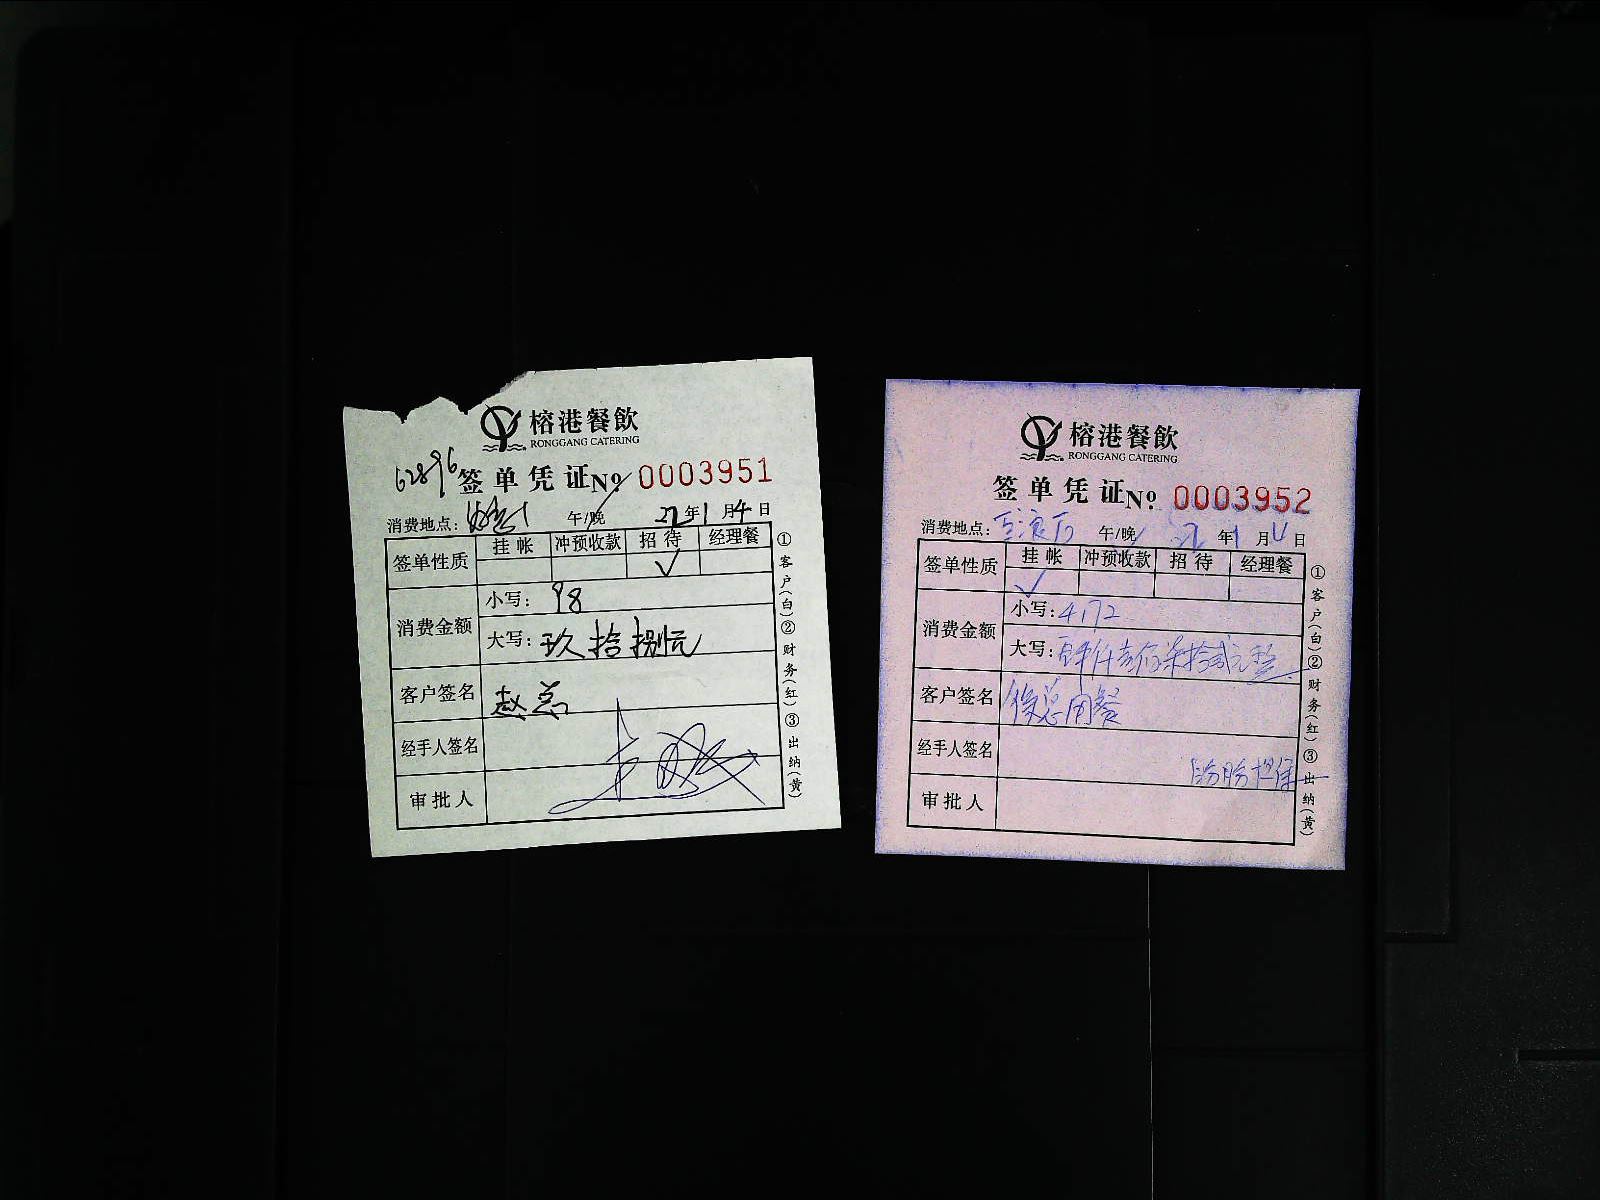 榕港餐飲
RONGGANG CATERING
62896
签单凭证 No. 0003951
消费地点: 午/晚 22年1月4日
签单性质 挂帐 冲预收款 招待 经理餐
✓
消费金额
小写: 98
大写: 玖拾捌元
客户签名 赵总
经手人签名
审批人
①客户(白)②财务(红)③出纳(黄)
榕港餐飲
RONGGANG CATERING
签单凭证 No. 0003952
消费地点: 午/晚 22年1月4日
签单性质 挂帐 冲预收款 招待 经理餐
✓
消费金额
小写: 4172
大写: 肆仟壹佰柒拾贰元整
客户签名 俊总用餐
经手人签名
担保
审批人
①客户(白)②财务(红)③出纳(黄)